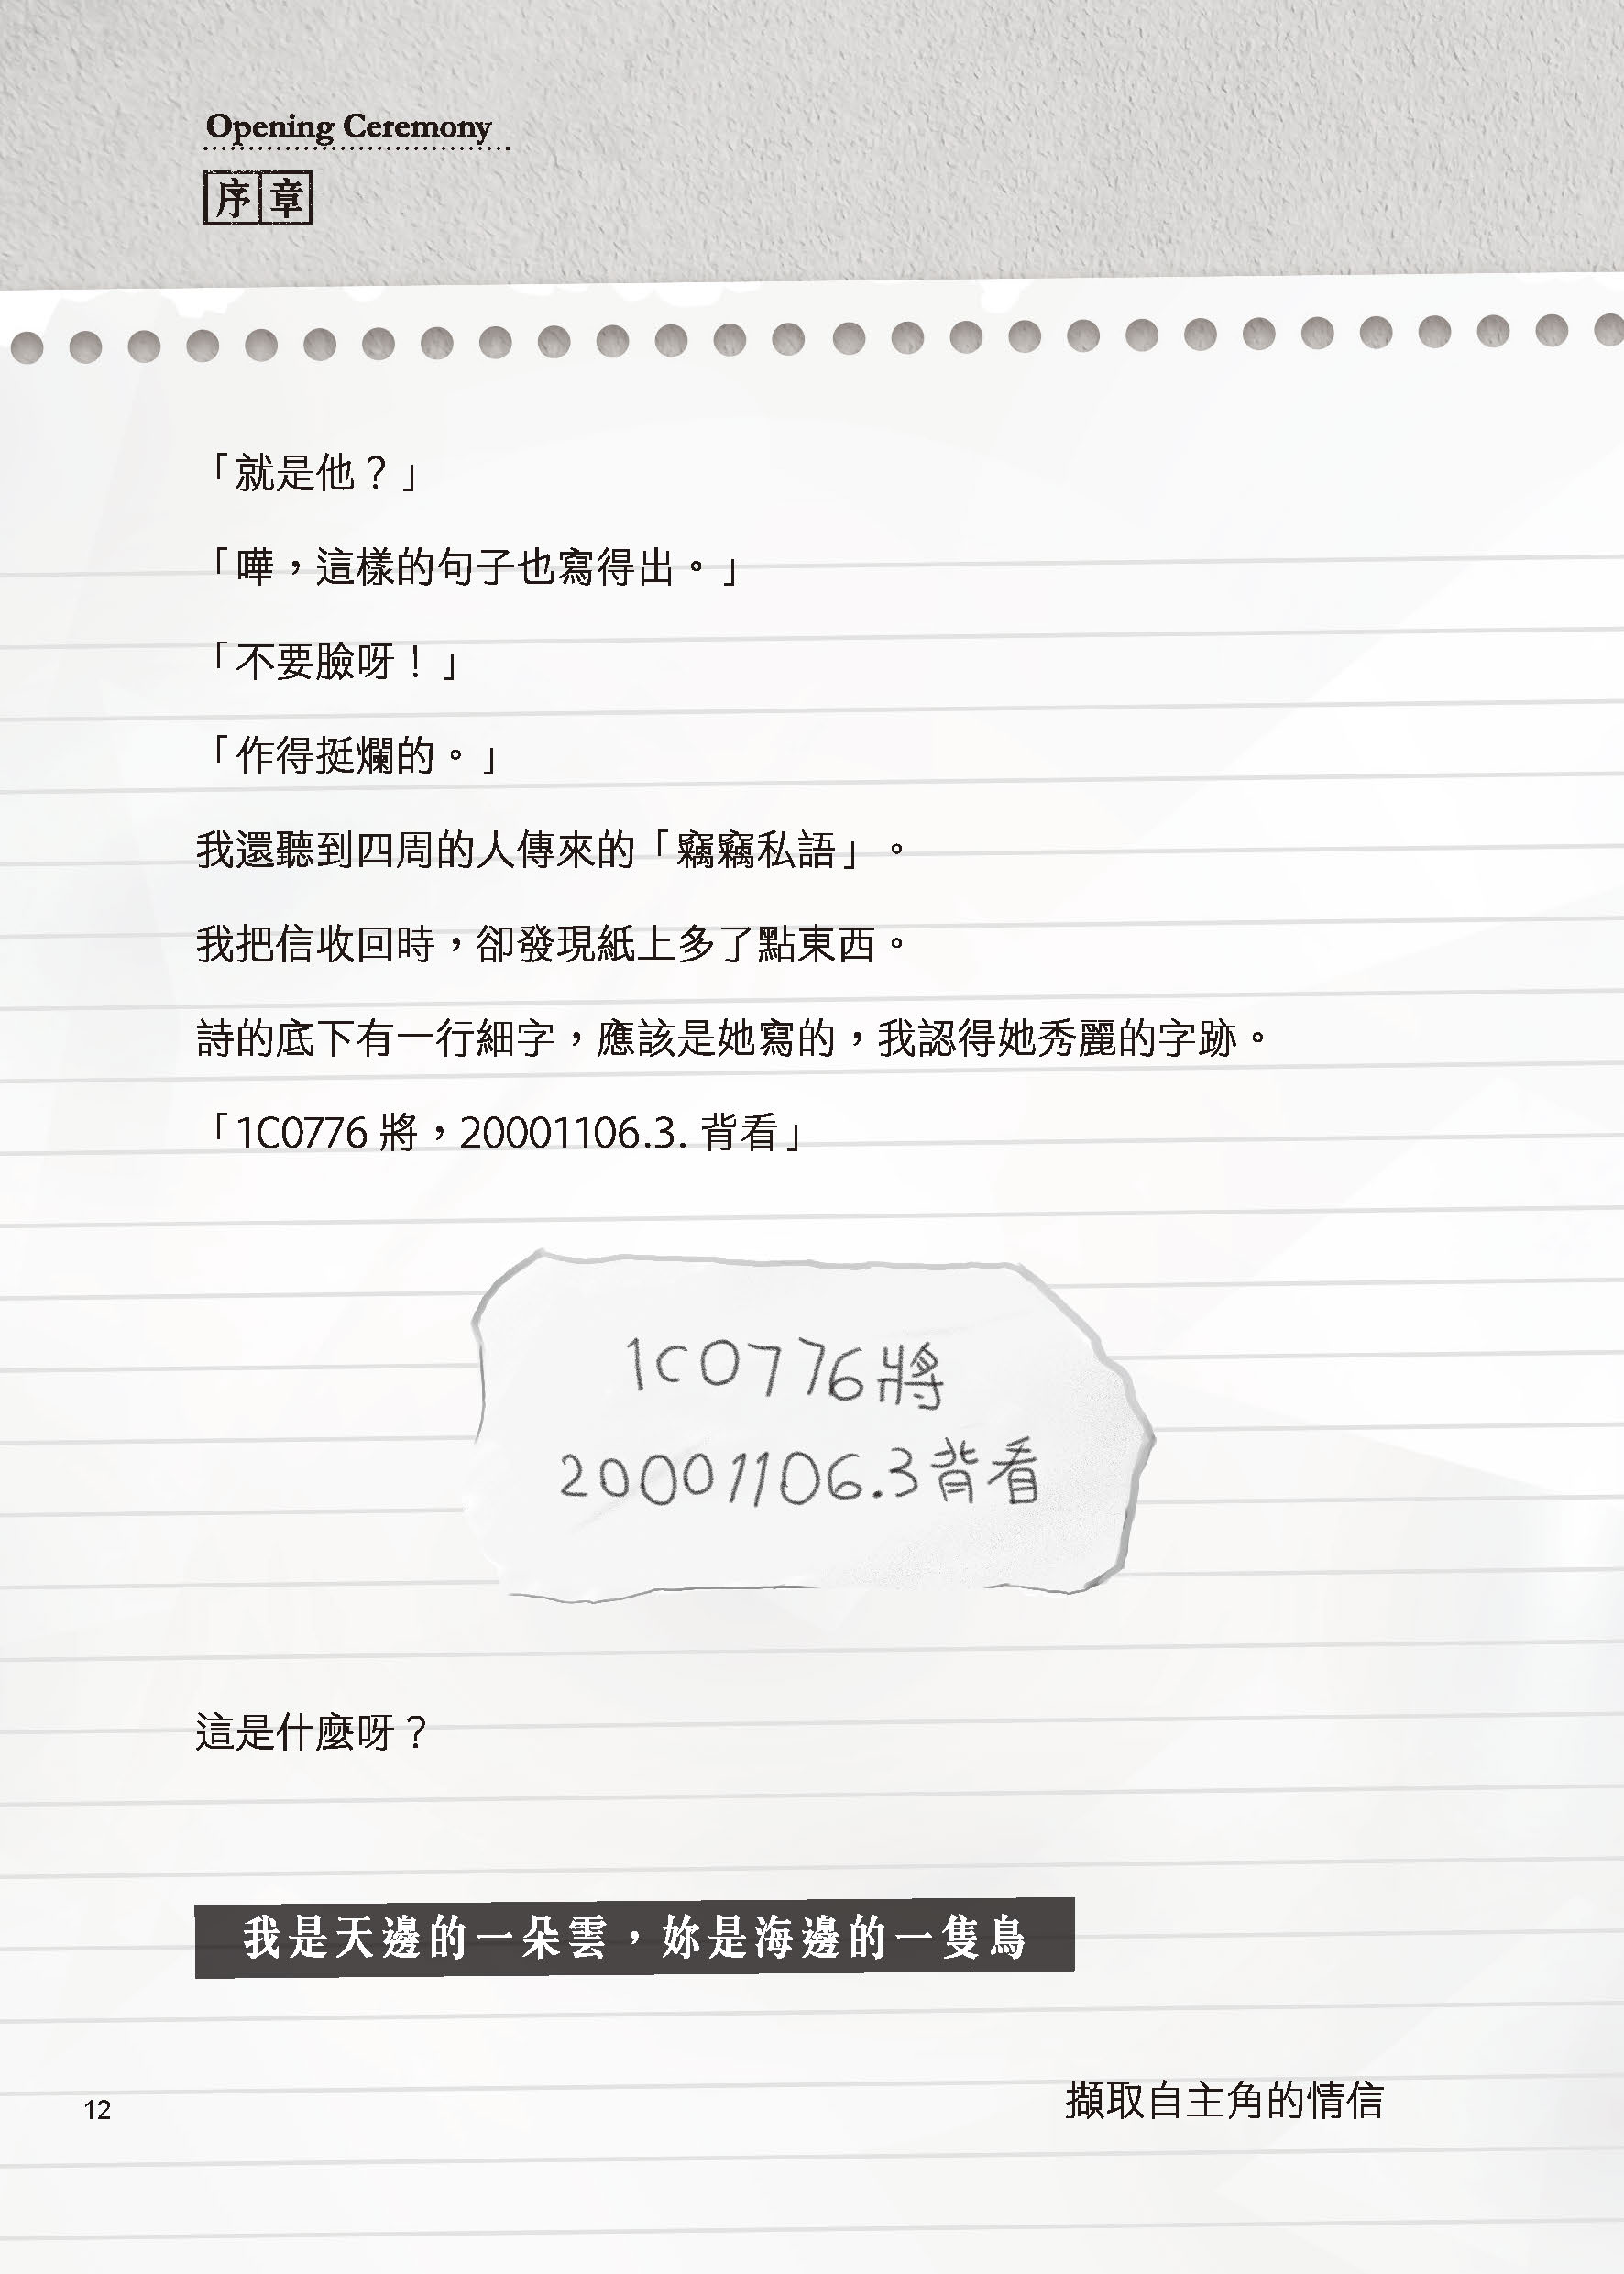 Opening Ceremony
序章
「就是他？」
「嘩，這樣的句子也寫得出。」
「不要臉呀！」
「作得挺爛的。」
我還聽到四周的人傳來的「竊竊私語」。
我把信收回時，卻發現紙上多了點東西。
詩的底下有一行細字，應該是她寫的，我認得她秀麗的字跡。
「1C0776 將，20001106.3. 背看」
1C0776將
20001106.3背看
這是什麼呀？
我是天邊的一朵雲，妳是海邊的一隻鳥
擷取自主角的情信
12